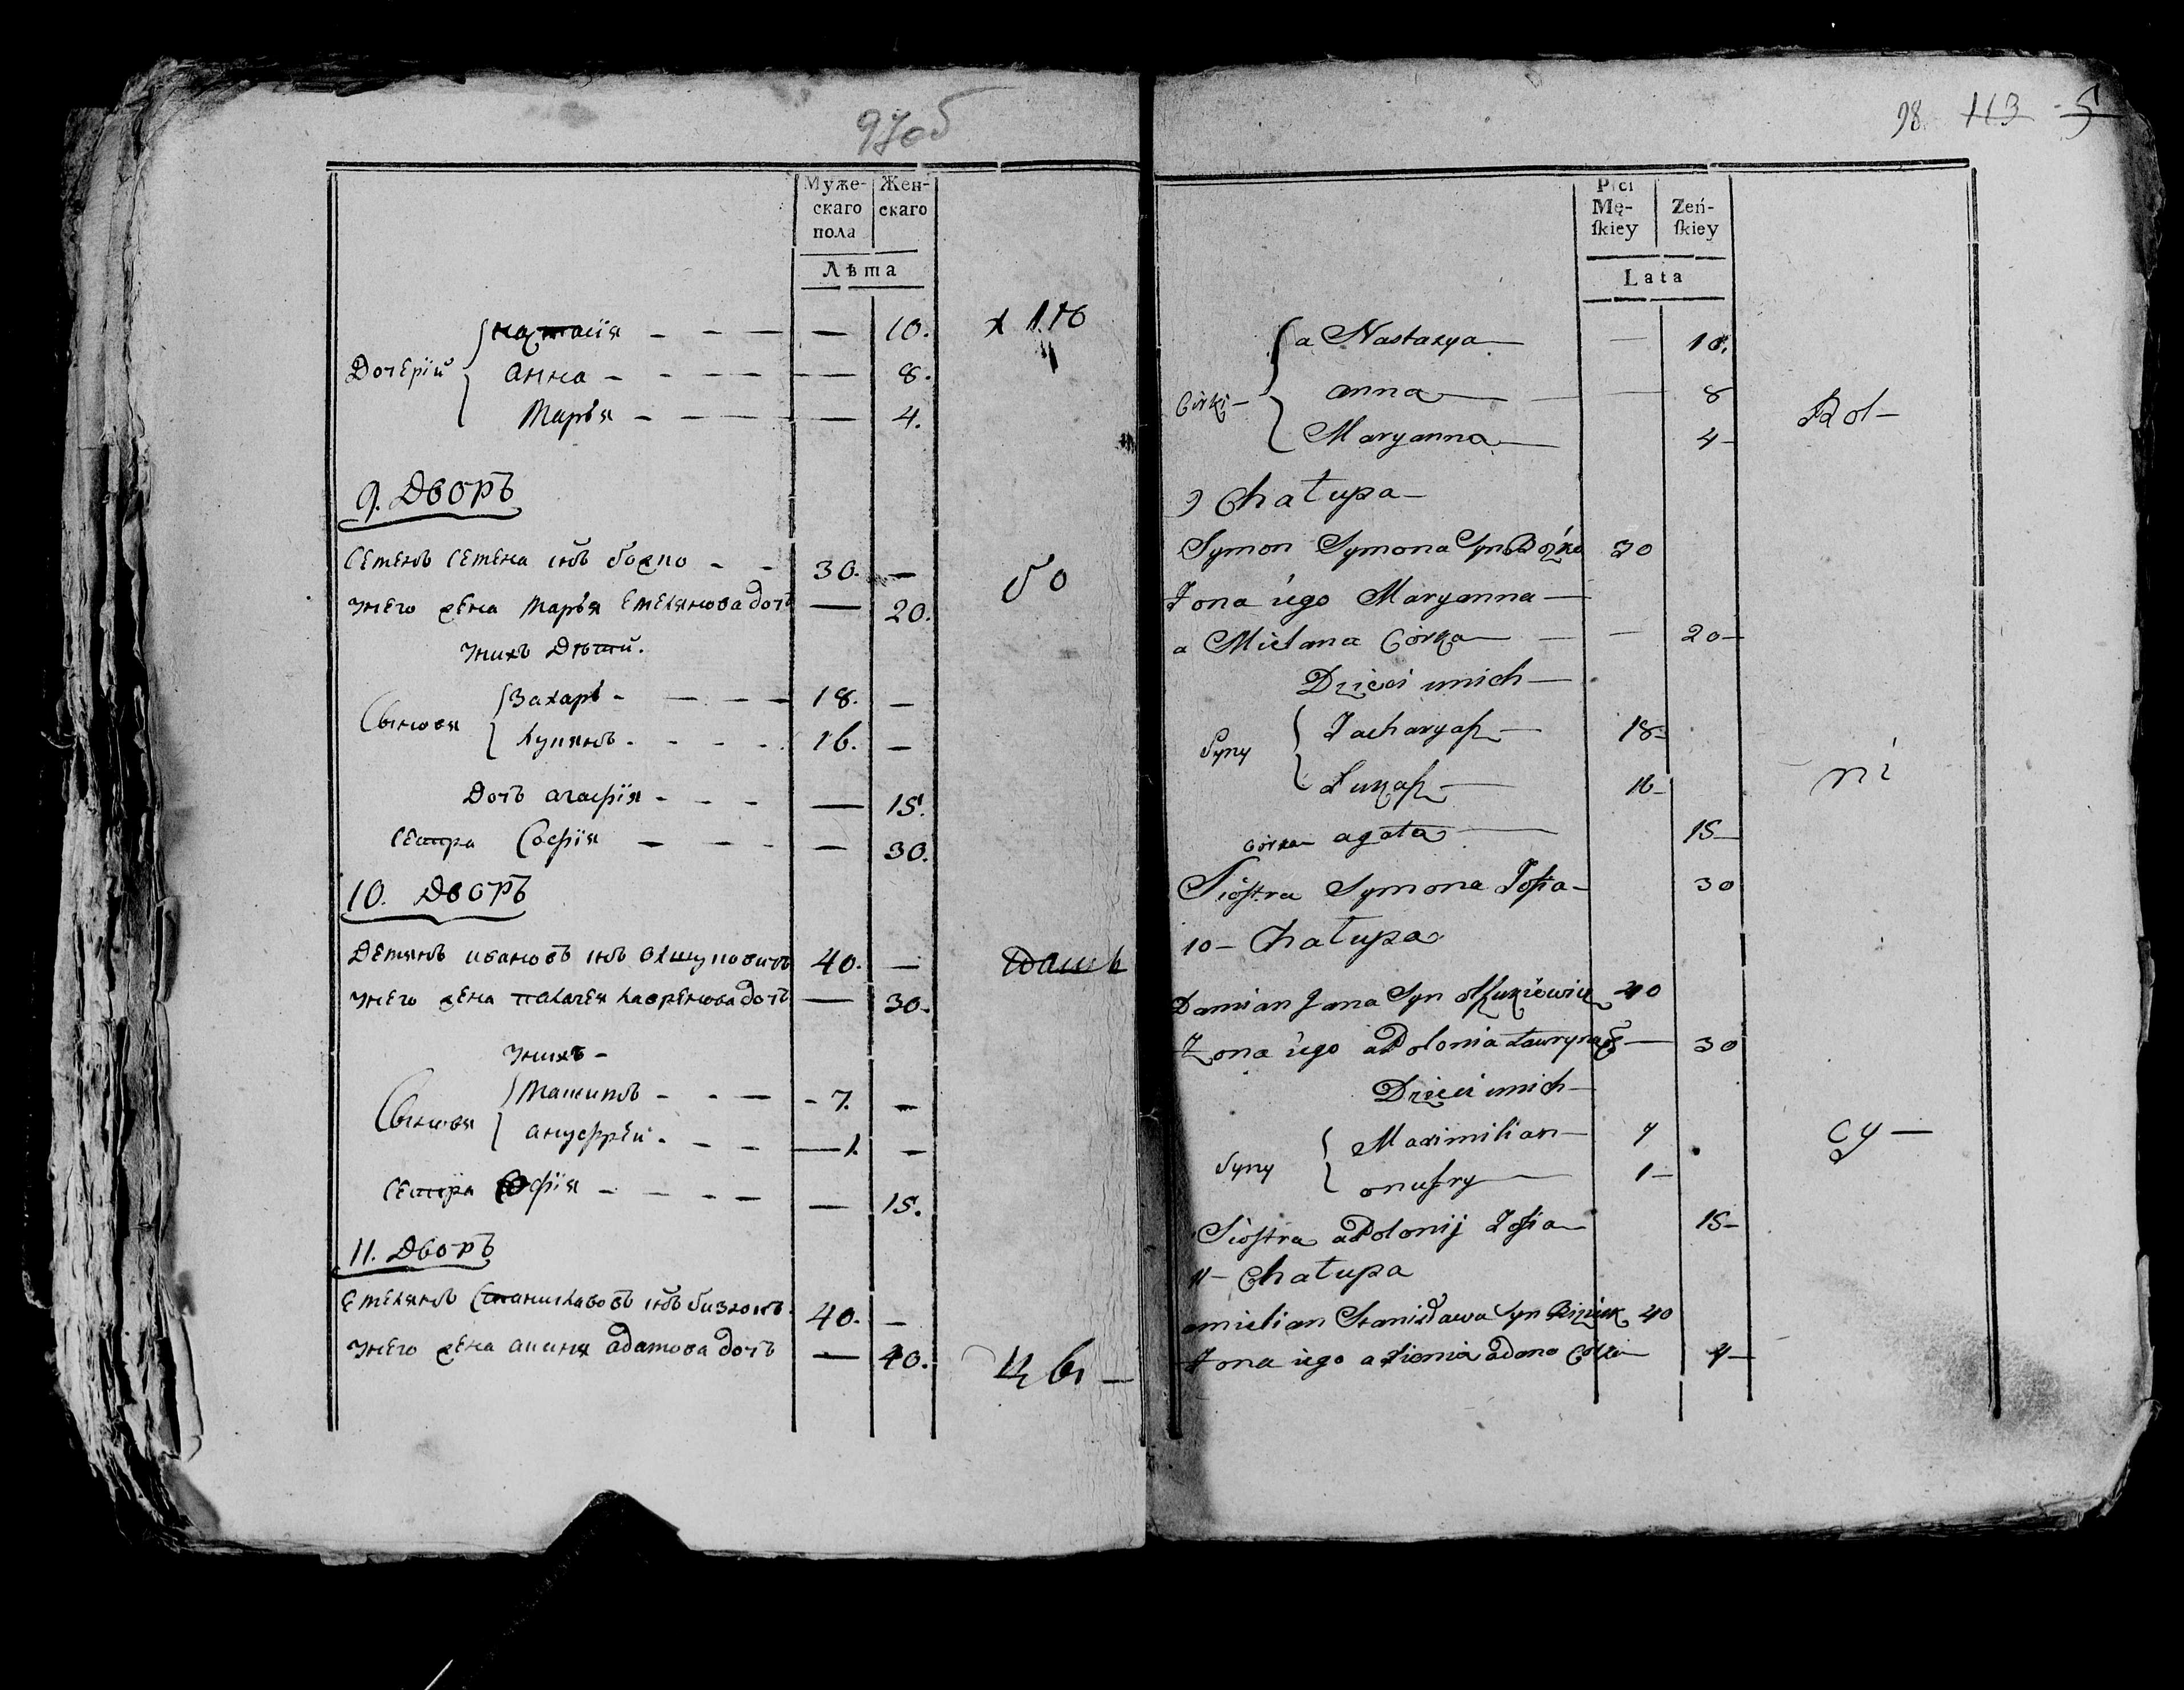 97об
Муже-
скаго
пола
Жен-
скаго
Лѣта
Настасiя - - - — 10.
Дочерiй
Анна - - - — 8.
Марья - - - — 4.
9. Дворъ
Семенъ Семена снъ божко - - 30. —
Унего жена Марья Емелянова дочъ — 20.
Унихъ Дѣтй.
Сыновя
Захаръ - - - 18. —
Лукянъ - - - 16. —
Дочъ агафiя - - - — 15.
Сестра Софiя - - - — 30.
10. Дворъ
Демянъ ивановъ снъ 40. —
Унего жена Палагея Лавренова дочъ — 30.
Унихъ -
Сыновя
Макимъ - - - 7. —
ануфрѣй - - - 1. —
Сестра Софiя - - - — 15.
11. Дворъ
Емелянъ Станиславовъ снъ 40. —
Унего жена аксиня адамова дочъ — 40.
98. 113 5
Płci
Mę-
ſkiey
Zeń-
ſkiey
Lata
a Nastazya — 10.
Córki —
anna — 8
Maryanna — 4
9 Chałupa —
Symon Symona Syn Bożko 30
Zona iego Maryanna —
a Mielana Córka — 20 —
Dzieci unich —
Syny
Zacharyaſz — 18 —
Łukaſz — 16 —
córka agata — 15 —
Sioſtra Symona Zofia — 30
10 — Chałupa
Damian Jana Syn 40
Zona iego aPolonia Ławryna C — 30
Dzieci unich —
Syny
Maximilian — 7
onufry — 1 —
Sioſtra aPolonij Zofia — 15 —
11 — Chałupa
amielian Stanisława Syn 40
Zona iego axienia adama Córka
Rol —
ni
cy —